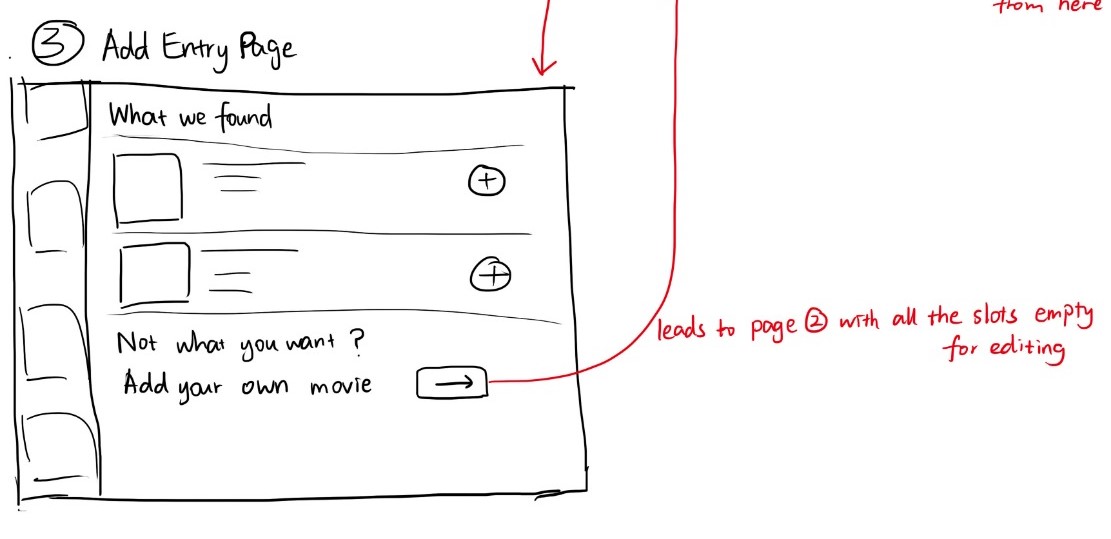 from here
③ Add Entry Page
What we found
+
+
Not what you want ?
Add your own movie →
leads to page ② with all the slots empty
for editing